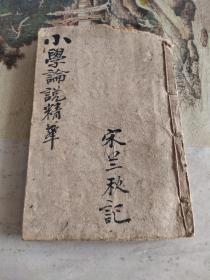 小學論説精華
宋兰秋記